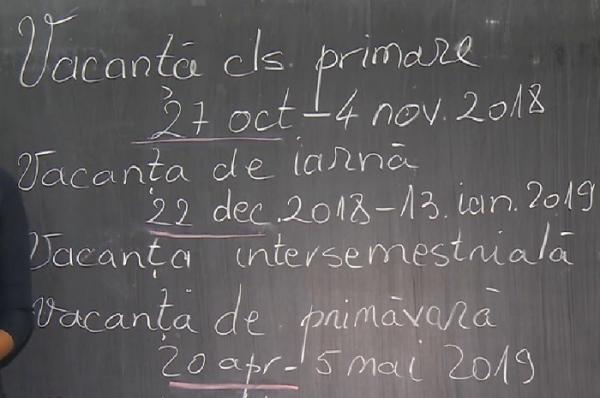 Vacantă cls. primare
27 oct - 4 nov. 2018
Vacanța de iarnă
22 dec. 2018 - 13. ian. 2019
Vacanța intersemestrială
Vacanță de primăvară
20 apr - 5 mai 2019